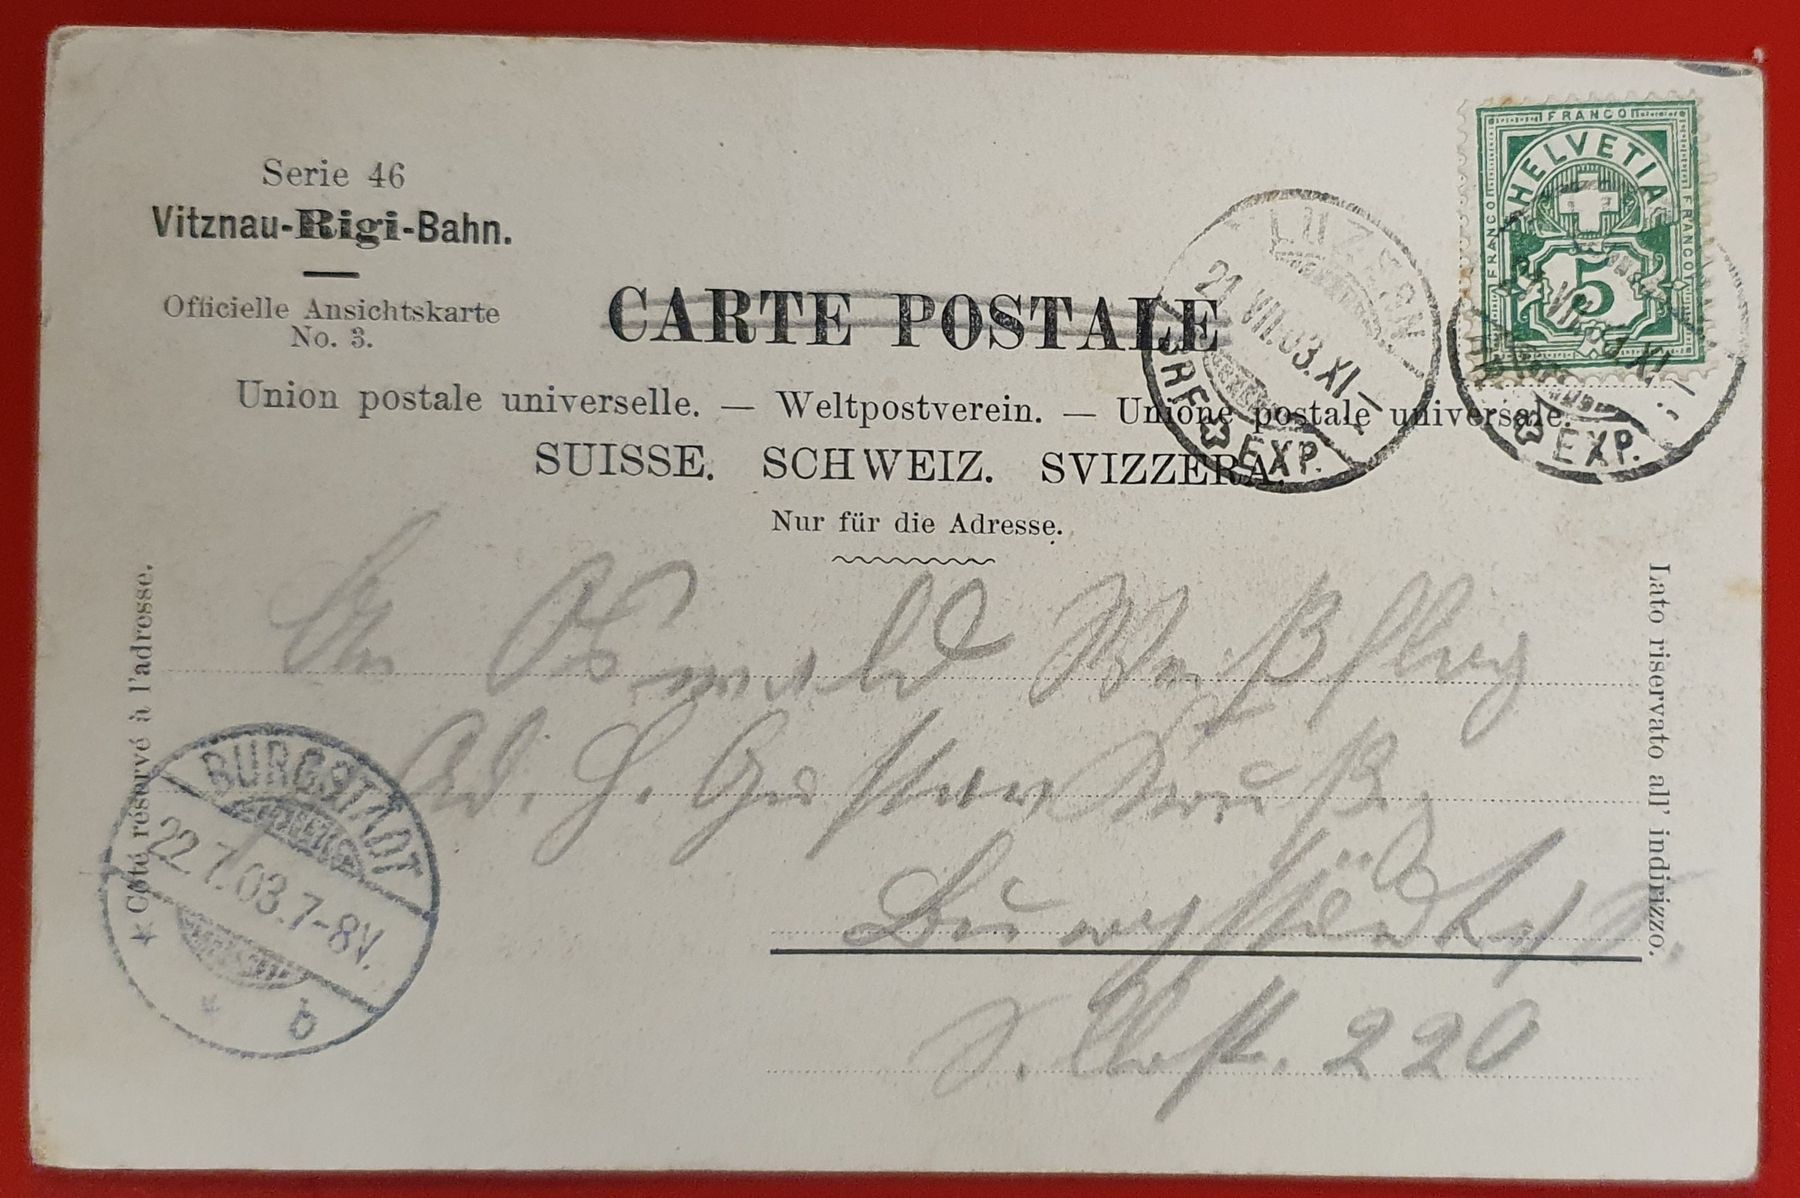 Serie 46
Vitznau-Rigi-Bahn.
Officielle Ansichtskarte
No. 3.
CARTE POSTALE
Union postale universelle. — Weltpostverein. — Unione postale universale.
SUISSE. SCHWEIZ. SVIZZERA.
Nur für die Adresse.
Côté réservé à l'adresse.
Lato riservato all' indirizzo.
FRANCO
FRANCO
FRANCO
HELVETIA
5
LUZERN
21.VII.03.XI-
BRF. EXP.
EXP.
BURGSTÄDT
22.7.03.7-8V.
* * b
An Oswald Weißflog
Ad. H. Gustav
Burgstädt i/S.
220